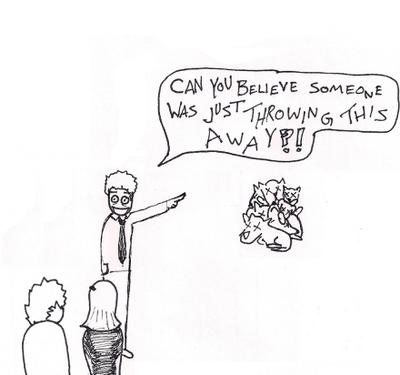 CAN YOU BELIEVE SOMEONE
WAS JUST THROWING THIS
AWAY?!